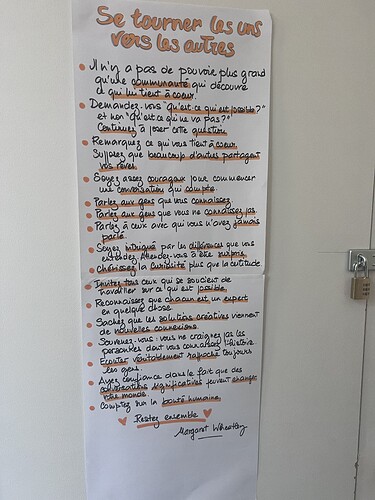 Se tourner les uns
vers les autres
Il n'y a pas de pouvoir plus grand
qu'une communauté qui découvre
ce qui lui tient à coeur.
Demandez-vous "Qu'est-ce qui est possible?"
et non "Qu'est ce qui ne va pas?"
Continuez à poser cette question
Remarquez ce qui vous tient à coeur.
Supposez que beaucoup d'autres partagent
vos rêves.
Soyez assez courageux pour commencer
une conversation qui compte.
Parlez aux gens que vous connaissez.
Parlez aux gens que vous ne connaissez pas.
Parlez à ceux avec qui vous n'avez jamais
parlé.
Soyez intrigué par les différences que vous
entendez. Attendez-vous à être surpris.
Chérissez la curiosité plus que la certitude.
Invitez tous ceux qui se soucient de
travailler sur ce qui est possible.
Reconnaissez que chacun est un expert
en quelque chose.
Sachez que les solutions créatives viennent
de nouvelles connexions.
Souvenez-vous: vous ne craignez pas les
personnes dont vous connaissez l'histoire.
Ecouter véritablement rapproche toujours
les gens.
Ayez confiance dans le fait que des
conversations significatives peuvent changer
monde.
Comptez sur la bonté humaine.
Restez ensemble
Margaret Wheatley